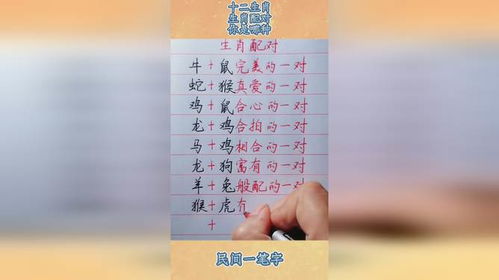 十二生肖
生肖配对
你是哪种
生肖配对
牛+鼠完美的一对
蛇+猴真爱的一对
鸡+鼠合心的一对
龙+鸡合拍的一对
马+鸡相合的一对
龙+狗富有的一对
羊+兔般配的一对
猴+虎有
+
民间一笔字